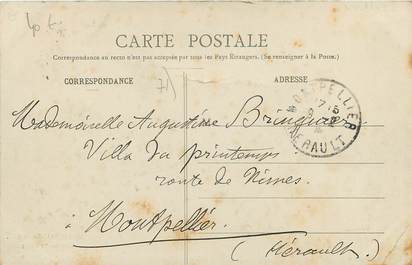 CARTE POSTALE
Correspondance au recto n'est pas acceptée par tous les Pays Étrangers. (Se renseigner à la Poste.)
CORRESPONDANCE
ADRESSE
MONTPELLIER
HERAULT
Mademoiselle Augustine Bringuier
Villa du printemps
route de Nimes
Montpellier
(Hérault)